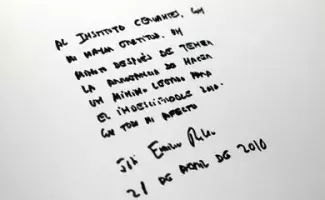 AL INSTITUTO CERVANTES, CON
MI MAYOR GRATITUD, UN
MINUTO DESPUÉS DE TENER
LA ARROGANCIA DE HACER
UN MÍNIMO LEGADO PARA
EL
CON TODO MI AFECTO
José Emilio
21 DE ABRIL DE 2010